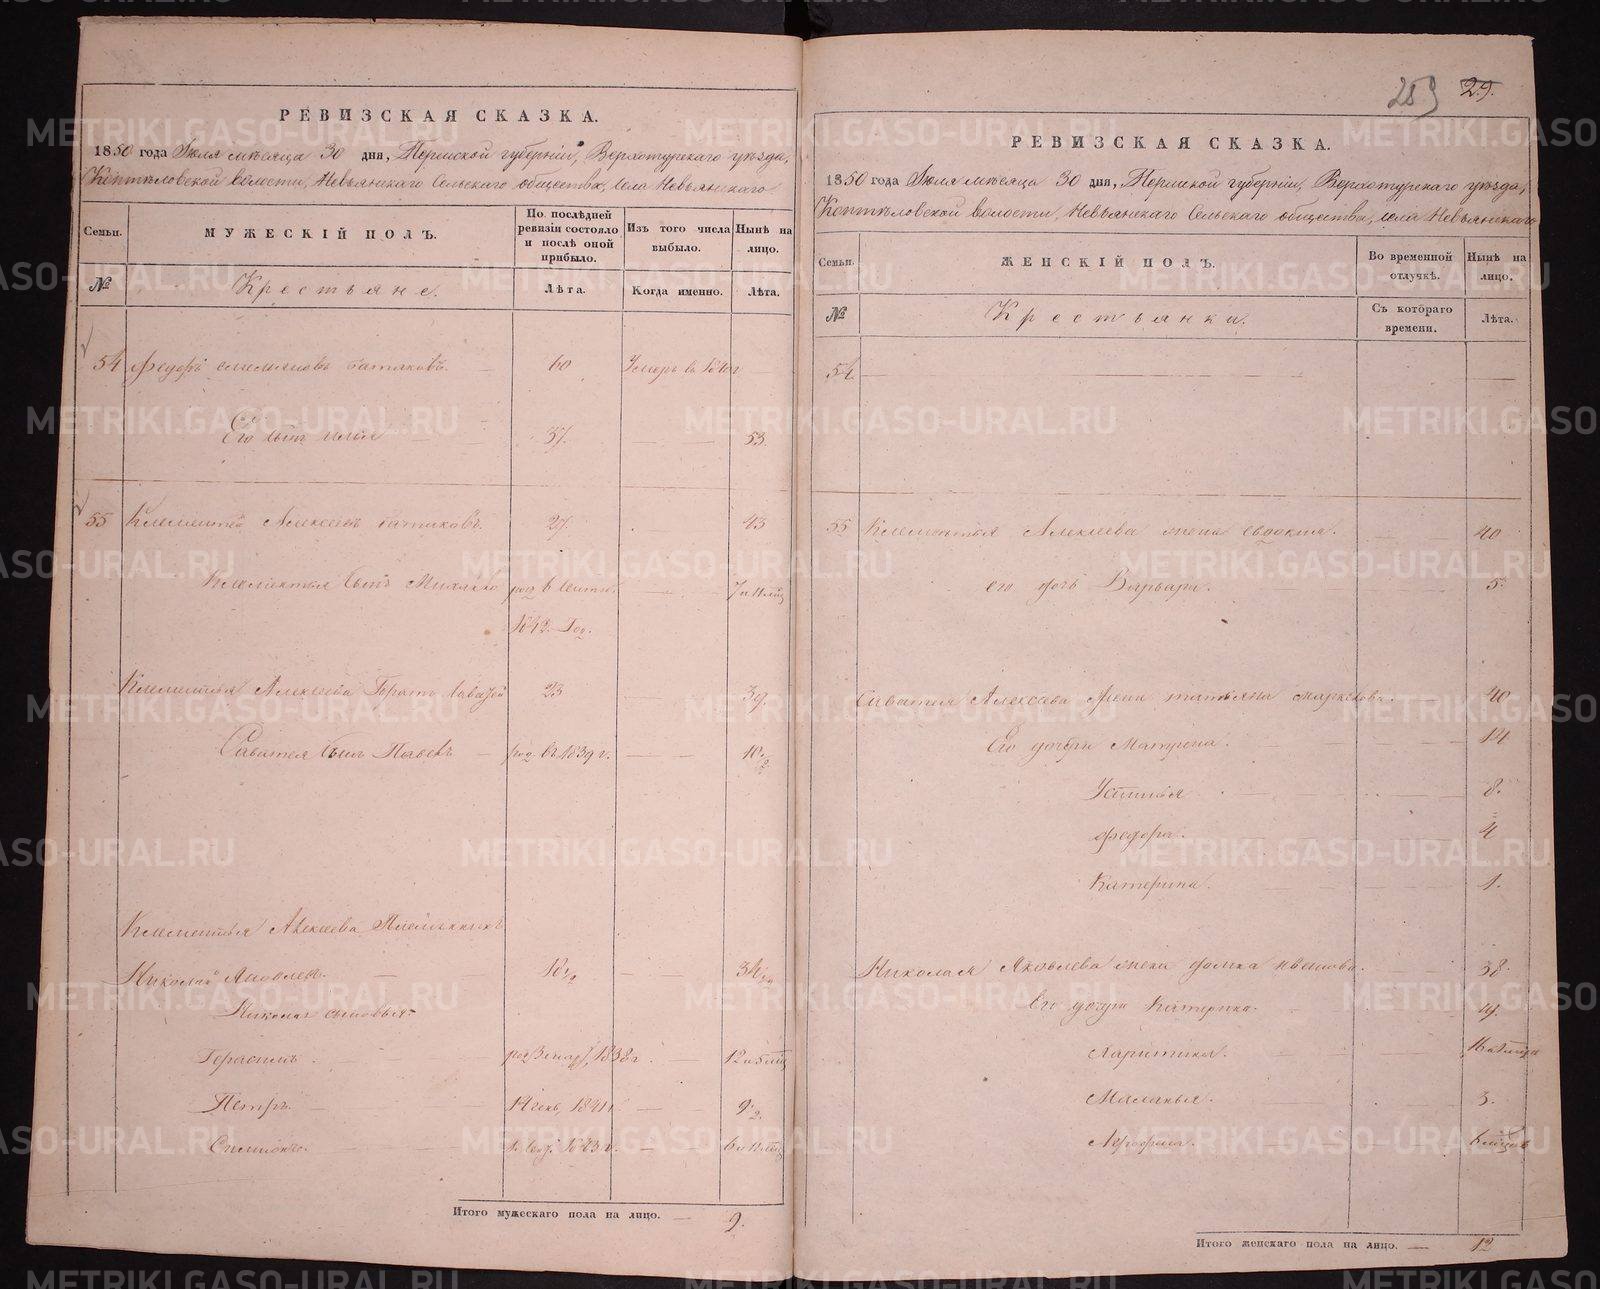 РЕВИЗСКАЯ СКАЗКА.
1850 года Июля мѣсяца 30 дня, Пермской губерніи, Верхотурскаго уѣзда,
Коптѣловской волости, Невьянскаго Сельскаго общества, села Невьянскаго
Семьи. МУЖЕСКІЙ ПОЛЪ. По послѣдней ревизіи состояло и послѣ оной прибыло. Изъ того числа выбыло. Нынѣ на лицо.
№ Крестьяне. Лѣта. Когда именно. Лѣта.
54 Федоръ Емельяновъ 60 Умеръ въ 1840 г
Его сынъ Илья 37. 53.
55 Клементей Алексеевъ 27. 43
Клементья сынъ Михайло род. в сент. 7 и 11 мѣс
1842. год.
Клементья Алексеева братъ Саватей 23 39.
Саватея сынъ род. въ 1839 г. 10 1/2
Клементья Алексеева Племянникъ
Николай Яковлевъ. 18 1/2 34 1/2
Николая сыновья
Герасимъ. 1838 г 12 и 5 мѣс
Петръ. 1841 г. 9 1/2.
Симионъ. 1843 г. 6 и 11 мѣс
Итого мужескаго пола на лицо. — 9.
259 29.
РЕВИЗСКАЯ СКАЗКА.
1850 года Июля мѣсяца 30 дня, Пермской губерніи, Верхотурскаго уѣзда,
Коптѣловской волости, Невьянскаго Сельскаго общества, села Невьянскаго
Семьи. ЖЕНСКІЙ ПОЛЪ. Во временной отлучкѣ. Нынѣ на лицо.
№ Крестьянки. Съ котораго времени. Лѣта.
54.
55 Клементья Алексеева жена Евдокия. 40
его дочь Варвара. 5.
Саватея Алексеева жена Татьяна Маркелова. 40
Его дочери Матрена. 14
Устинья 8.
Федора. 4
Катерина. 1.
Николая Яковлева жена 38.
Его дочери Катерина. 19.
Маланья. 3.
Афросинья. 6 мѣсяцевъ
Итого женскаго пола на лицо. — 12
METRIKI.GASO-URAL.RU